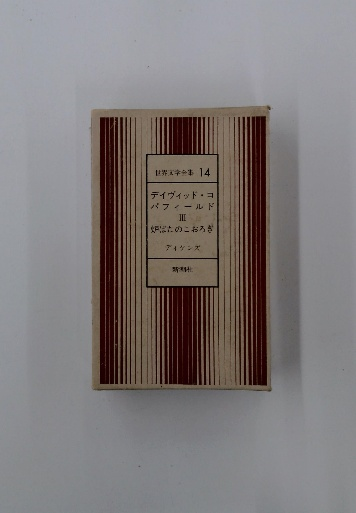 世界文学全集 14
デイヴィッド・コ
パフィールド
III
炉ばたのこおろぎ
ディケンズ
新潮社